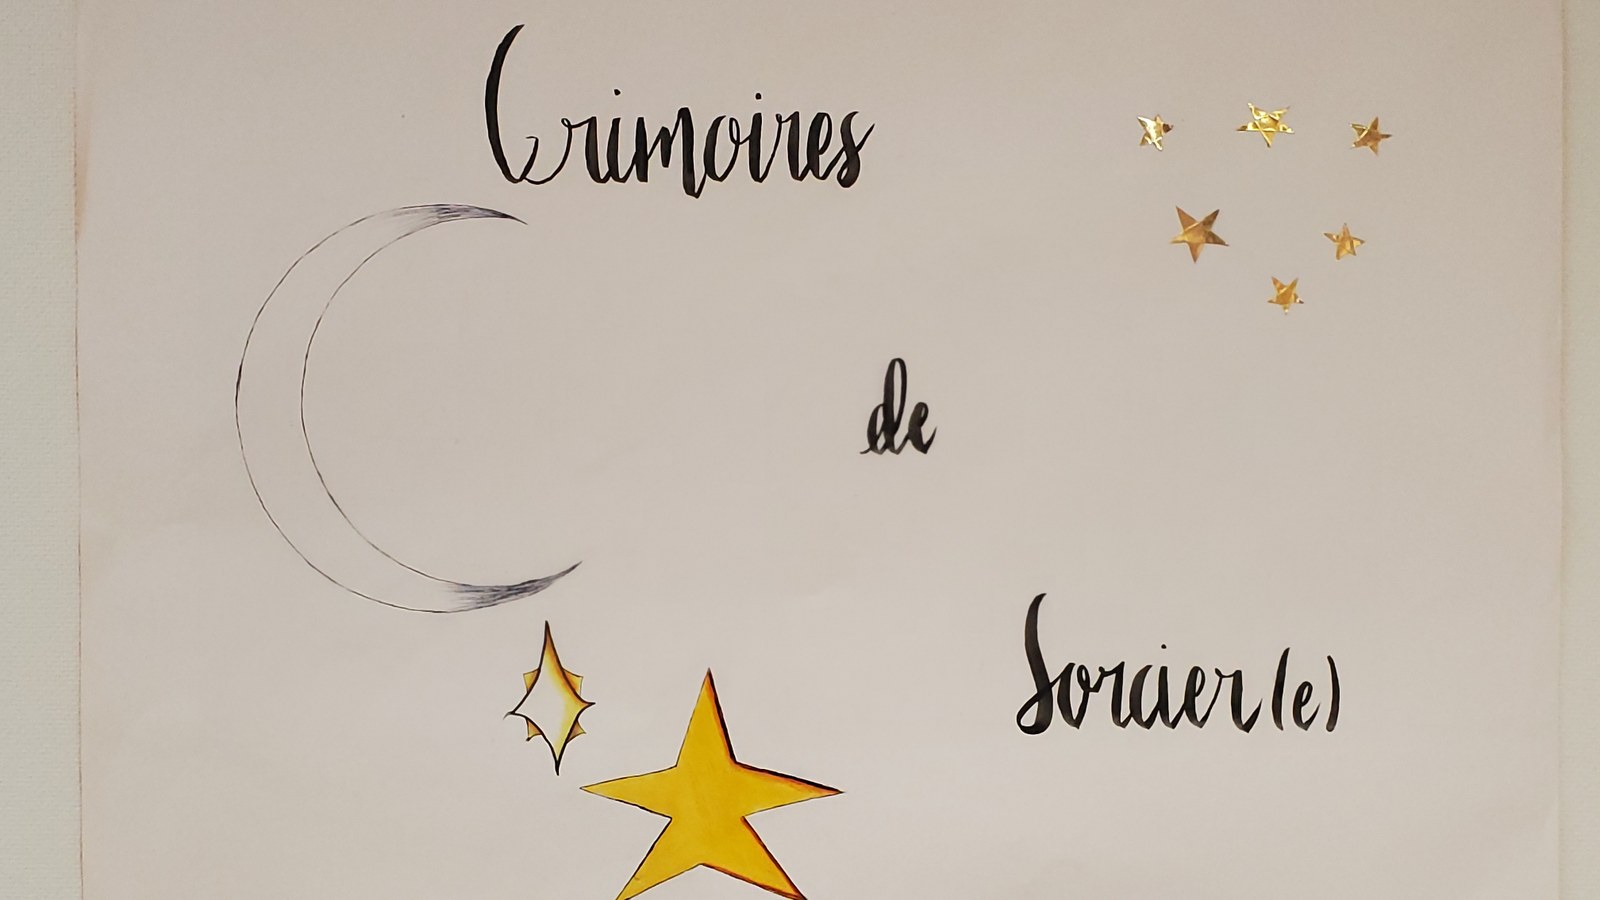 Grimoires
de
Sorcier(e)